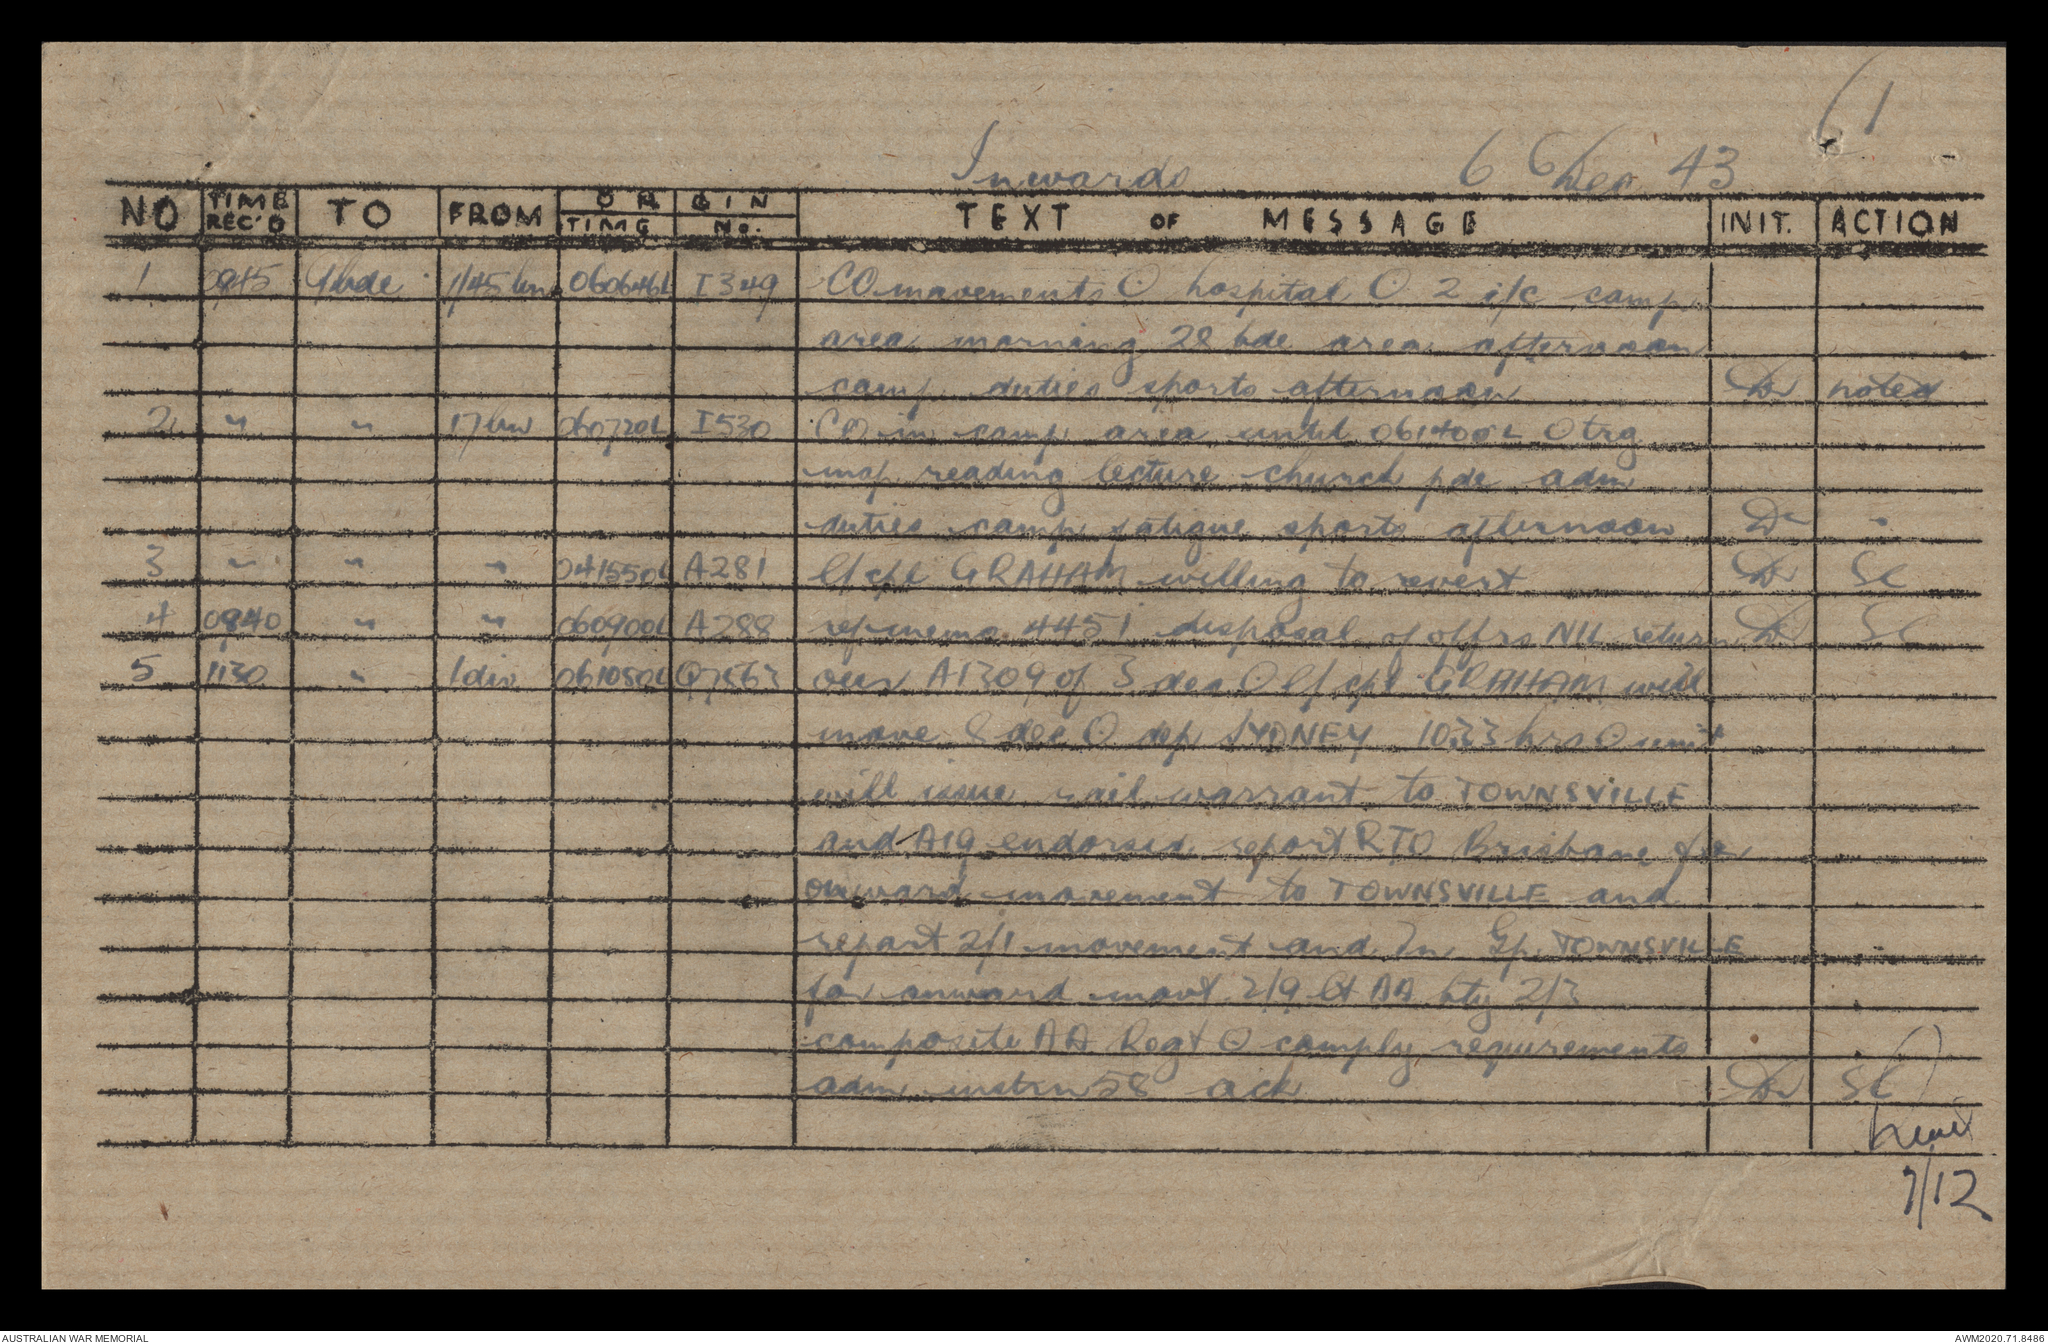 61
Inwards 6 6 Dec 43
NO TIME REC'D TO FROM ORIGIN TIME No. TEXT OF MESSAGE INIT. ACTION
1 0945 9 bde 1/45 bn 060646L I349 CO movements O hospital O 2 i/c camp
area morning 28 bde area afternoon
camp duties sports afternoon noted
2 " " 17 bn 060720L I530 CO in camp area until 061400L O trg
map reading lecture church pde adm
duties camp fatigue sports afternoon "
3 " " " 041550L A281 l/cpl GRAHAM willing to revert SC
4 0940 " " 060900L A288 memo 4451 disposal of offrs NIL return SC
5 1130 " 1 div 061050L Q7563 our A1309 of 3 dec O l/cpl GRAHAM will
move 8 dec O dep SYDNEY 1033 hrs O unit
will issue rail warrant to TOWNSVILLE
and A19 endorsed report RTO Brisbane for
onward movement to TOWNSVILLE and
report 2/1 movement and Tn Gp TOWNSVILLE
for onward movt 2/9 lt AA bty 2/3
composite AA Regt O comply requirements
adm instrn 58 ack SC
7/12
AUSTRALIAN WAR MEMORIAL AWM2020.71.8486